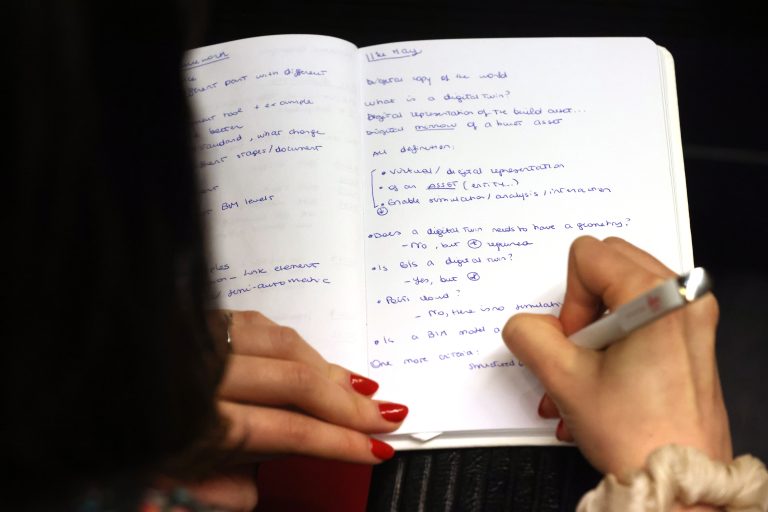 work
erent part with different
ment tool + example
better
standard, what change
erent stages/document
BIM levels
- link element
semi-automatic
11th May
Digital copy of the world
What is a digital twin?
Digital representation of the build asset...
Digital mirror of a built asset
All definition:
• Virtual / digital representation
• of an ASSET (entity...)
• Enable simulation/analysis/interaction
+
• Does a digital twin needs to have a geometry?
- No, but + required
• Is GIS a digital twin?
- Yes, but +
• Point cloud?
- No, there is no simulati
• Is a BIM model a
One more criteria:
structured